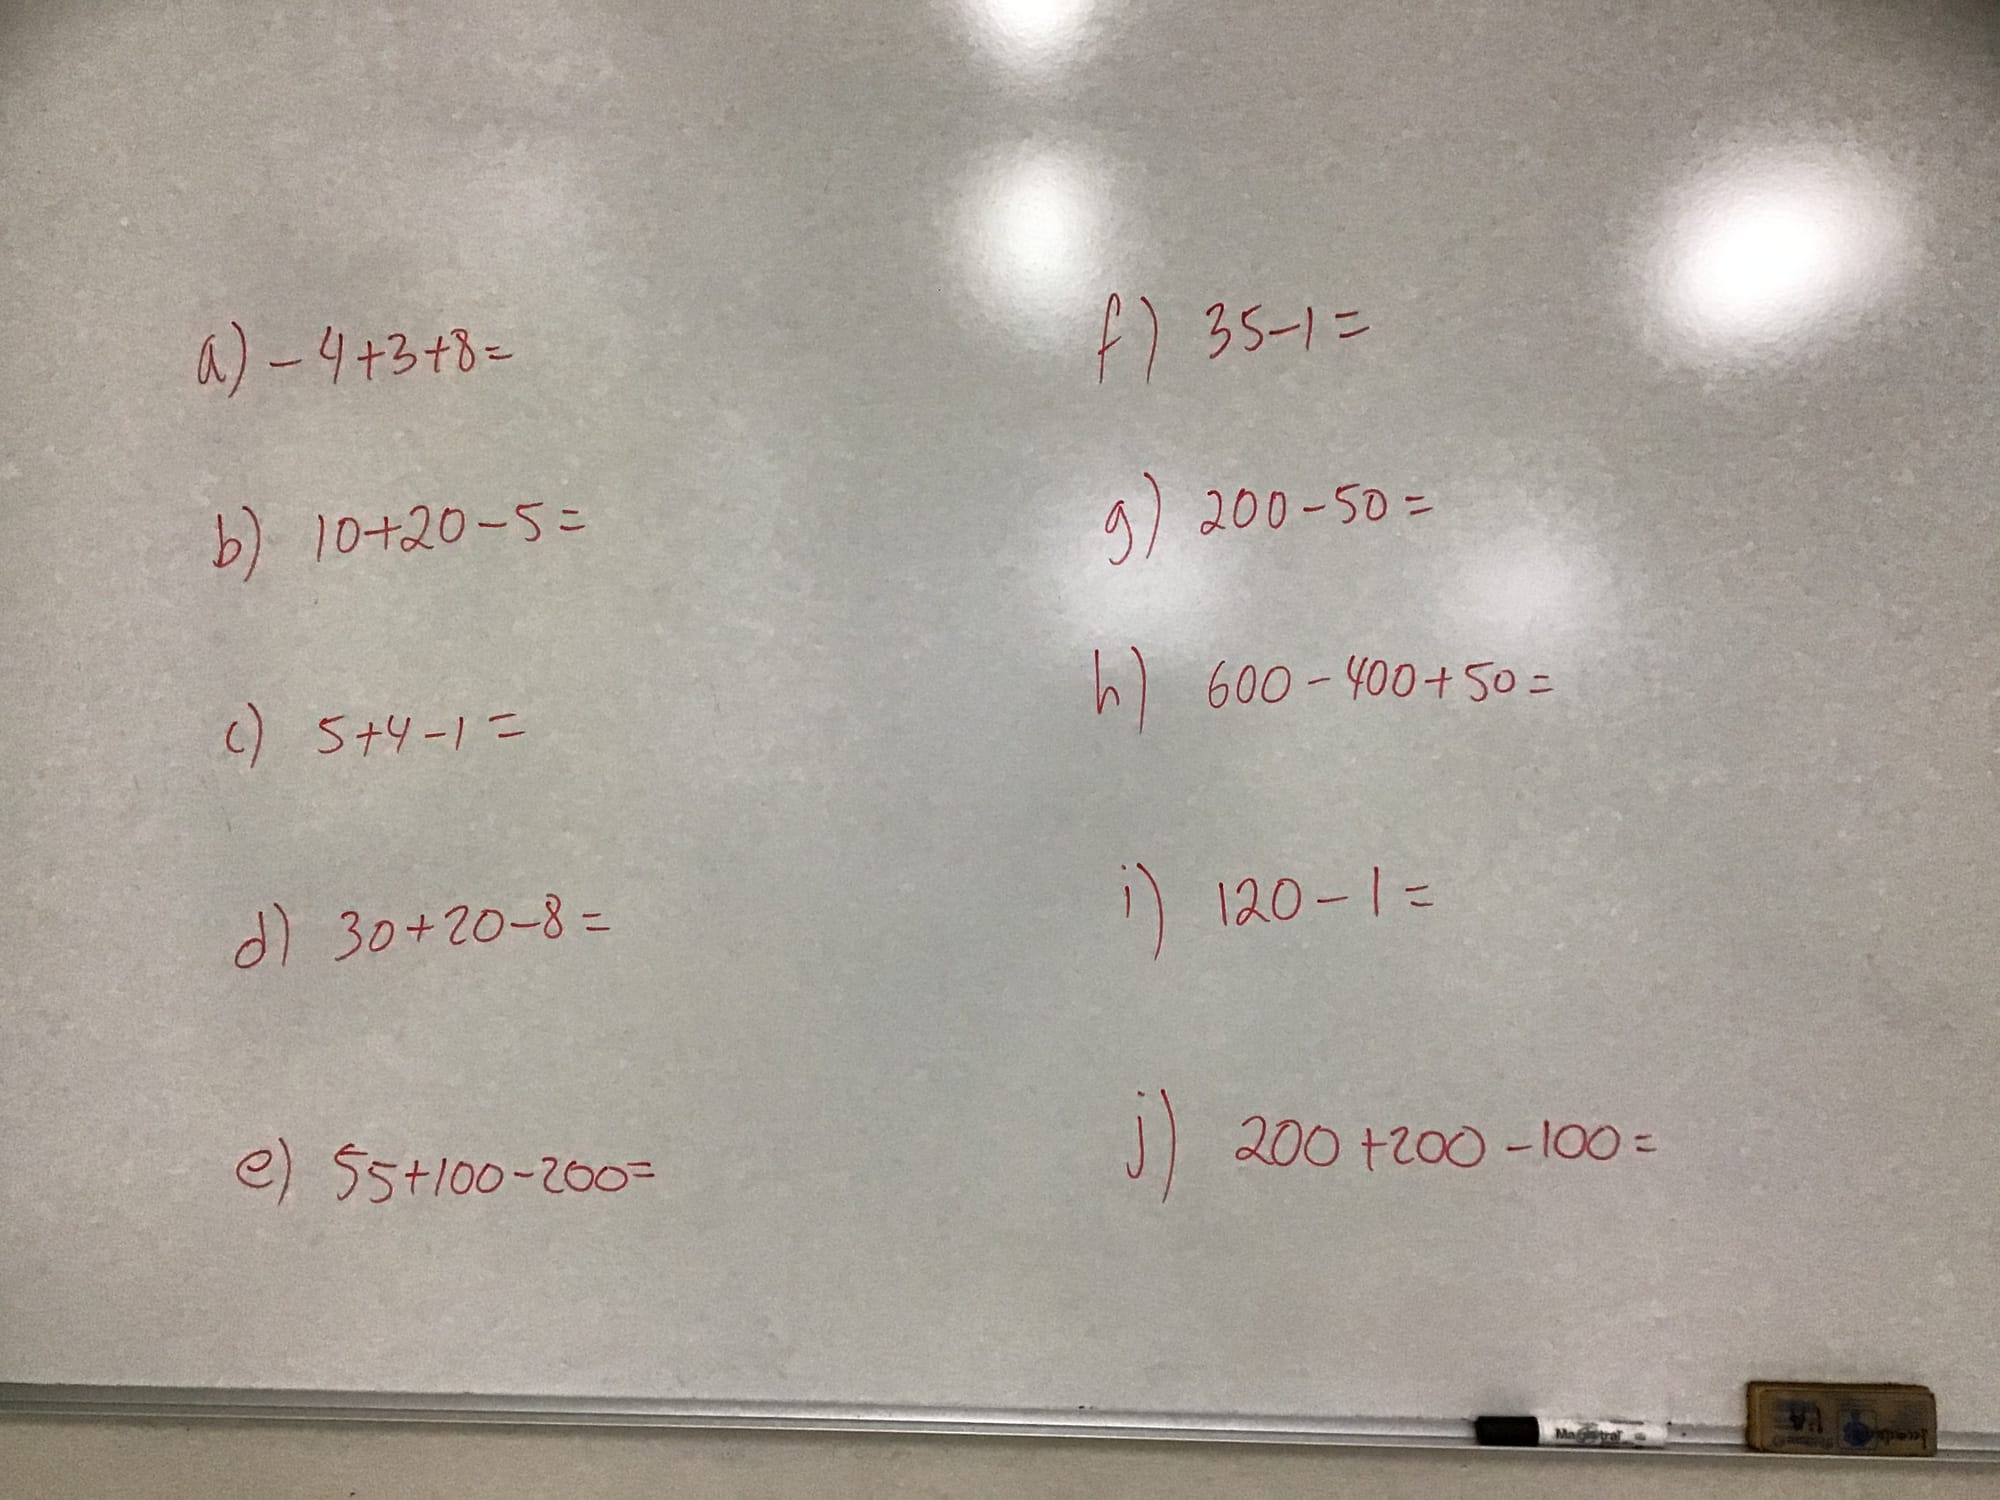 a) - 4+3+8=
b) 10+20-5=
c) 5+4-1=
d) 30+20-8=
e) 55+100-200=
f) 35-1=
g) 200-50=
h) 600-400+50=
i) 120-1=
j) 200+200-100=
Magistral